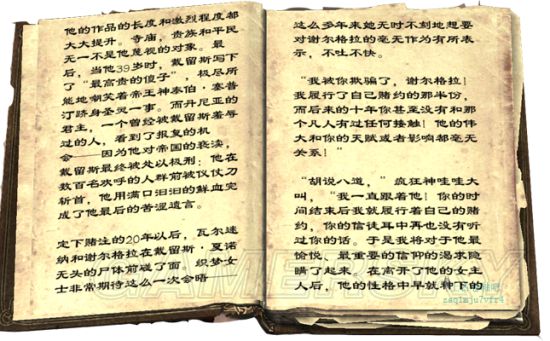 他的作品的长度和激烈程度都
大大提升。寺庙，贵族和平民
无一不是他蔑视的对象。最
后，当他39岁时，戴留斯写下
了“最高贵的傻子”，极尽所
能地嘲笑着帝王神泰伯·塞普
汀跻身圣灵一事。而丹尼亚的
君主，一个曾经被戴留斯羞辱
过的人，看到了报复的机
会——因为他对帝国的亵渎，
戴留斯最终被处以极刑：他在
数百名欢呼的人群前被仪仗刀
斩首，他用满口汩汩的鲜血完
成了他最后的苦涩遗言。
定下赌注的20年以后，瓦尔迷
纳和谢尔格拉在戴留斯·夏诺
无头的尸体前碰了面。织梦女
士非常期待这么一次会晤——
这么多年来她无时不刻地想要
对谢尔格拉的毫无作为有所表
示，不吐不快。
“我被你欺骗了，谢尔格拉！
我履行了自己赌约的那半份，
而后来的十年你甚至没有和那
个凡人有过任何接触！他的伟
大和你的天赋或者影响都毫无
关系！”
“胡说八道，”疯狂神哇哇大
叫，“我一直跟着他！你的时
间结束后我就履行着自己的赌
约，你的信徒耳中再也没有听
过你的话。于是我将对于他最
愉悦、最重要的信仰的渴求隐
瞒了起来，在离开了他的女主
人后，他的性格中早就种下的
GAMERSKY